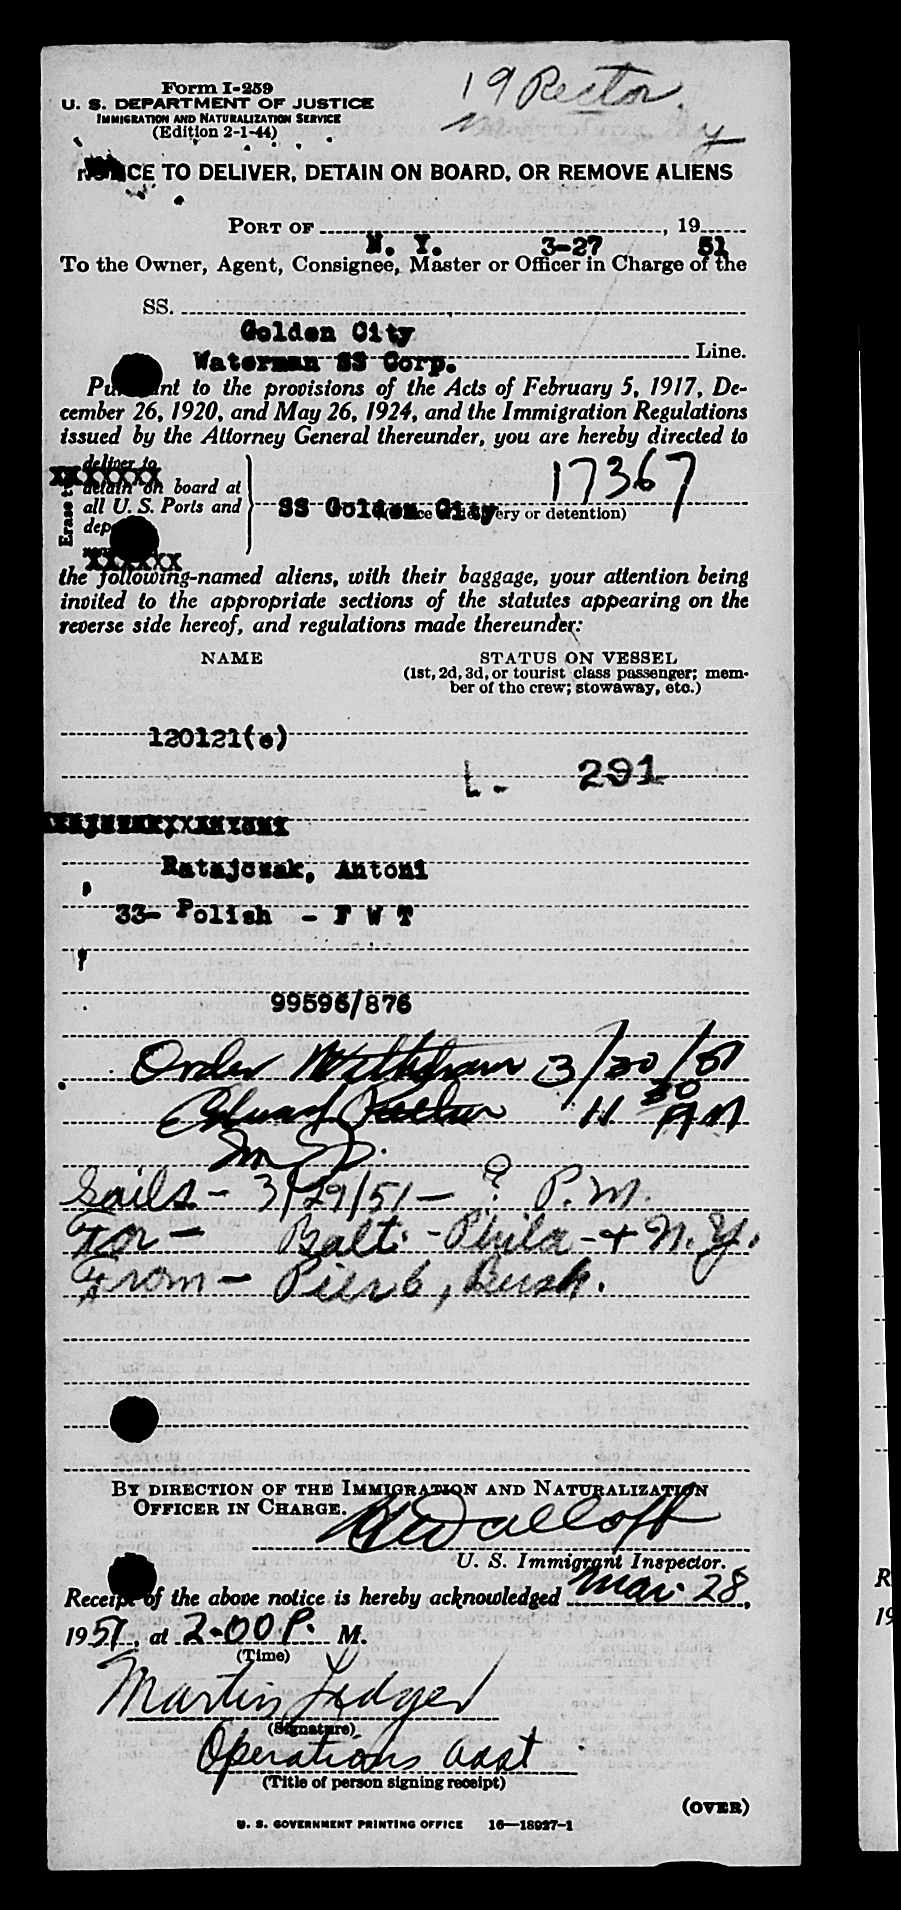 19 Rector.
Form I-259
U. S. DEPARTMENT OF JUSTICE
IMMIGRATION AND NATURALIZATION SERVICE
(Edition 2-1-44)
NOTICE TO DELIVER, DETAIN ON BOARD, OR REMOVE ALIENS
PORT OF N. Y. 3-27, 19 51
To the Owner, Agent, Consignee, Master or Officer in Charge of the
SS. Golden City
Waterman SS Corp. Line.
Pursuant to the provisions of the Acts of February 5, 1917, De-
cember 26, 1920, and May 26, 1924, and the Immigration Regulations
issued by the Attorney General thereunder, you are hereby directed to
deliver to
detain on board at
17367
all U. S. Ports and
SS Golden City
(Place of delivery or detention)
the following-named aliens, with their baggage, your attention being
invited to the appropriate sections of the statutes appearing on the
reverse side hereof, and regulations made thereunder:
NAME STATUS ON VESSEL
(1st, 2d, 3d, or tourist class passenger; mem-
ber of the crew; stowaway, etc.)
120121(e)
L - 291
Ratajczak, Antoni
33- Polish - F W T
99596/876
Order Withdrawn 3/30/51
11 30 AM
Sails - 3/29/51 - ? P.M.
For - Balt. - Phila - + N.Y.
From - Pier 6, Bush.
BY DIRECTION OF THE IMMIGRATION AND NATURALIZATION
OFFICER IN CHARGE.
U. S. Immigrant Inspector.
Receipt of the above notice is hereby acknowledged Mar. 28,
1951, at 2.00 P. M.
(Time)
Martin Ledger
(Signature)
Operations Asst
(Title of person signing receipt)
(OVER)
U. S. GOVERNMENT PRINTING OFFICE 16—18927-1